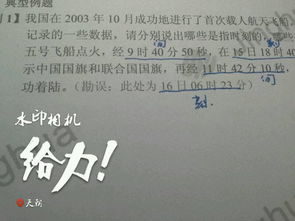 典型例题
1】我国在 2003 年 10 月成功地进行了首次载人航天飞
记录的一些数据，请分别说出哪些是指时刻的
五号飞船点火，经 9 时 40 分 50 秒，在 15 日 18 时 40
示中国国旗和联合国国旗，再经 11 时 42 分 10 秒，
功着陆。（勘误：此处为 16 日 06 时 23 分）
间
间
刻
水印相机
给力！